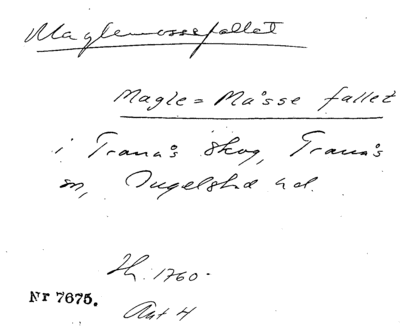 Maglemossefallet
Magle=Måsse fallet
i Tranås skog, Tranås
sn, Ingelstad hd.
1760.
Nr 7675.
Akt 4